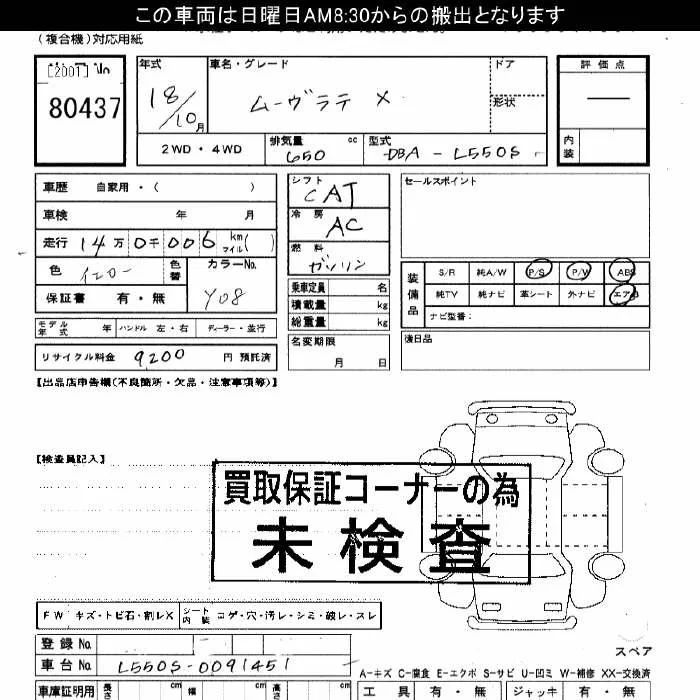 この車両は日曜日AM8:30からの搬出となります
(複合機)対応用紙
[2001] No
80437
年式
18/10月
車名・グレード
ムーヴラテ X
ドア
形状
評価点
—
内装
2WD・4WD
排気量 cc
650
型式
DBA-L550S
車歴 自家用・( )
車検 年 月
走行 14万0千006 km マイル( )
色 イエロー
色替
カラーNo.
Y08
保証書 有・無
モデル年式 年 ハンドル 左・右 ディーラー・並行
リサイクル料金 9200 円 預託済
シフト
CAT
冷房
AC
燃料
ガソリン
乗車定員 名
積載量 kg
総重量 kg
名変期限
月 日
セールスポイント
装備品
S/R 純A/W P/S P/W ABS
純TV 純ナビ 革シート 外ナビ エアB
ナビ型番:
後日品
【出品店申告欄(不良箇所・欠品・注意事項等)】
【検査員記入】
買取保証コーナーの為
未検査
FW キズ・トビ石・割レX シート内装 コゲ・穴・汚レ・シミ・破レ・スレ
登録No.
車台No. L550S-0091451
スペア
A-キズ C-腐食 E-エクボ S-サビ U-凹ミ W-補修 XX-交換済
車庫証明用 長さ cm 幅 cm 高さ cm
工具 有・無 ジャッキ 有・無